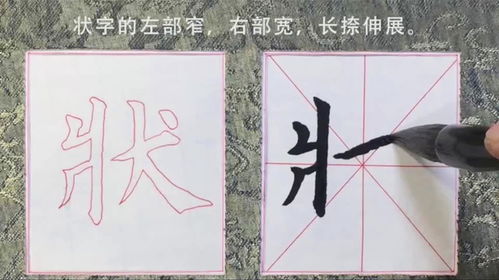 状字的左部窄，右部宽，长捺伸展。
狀